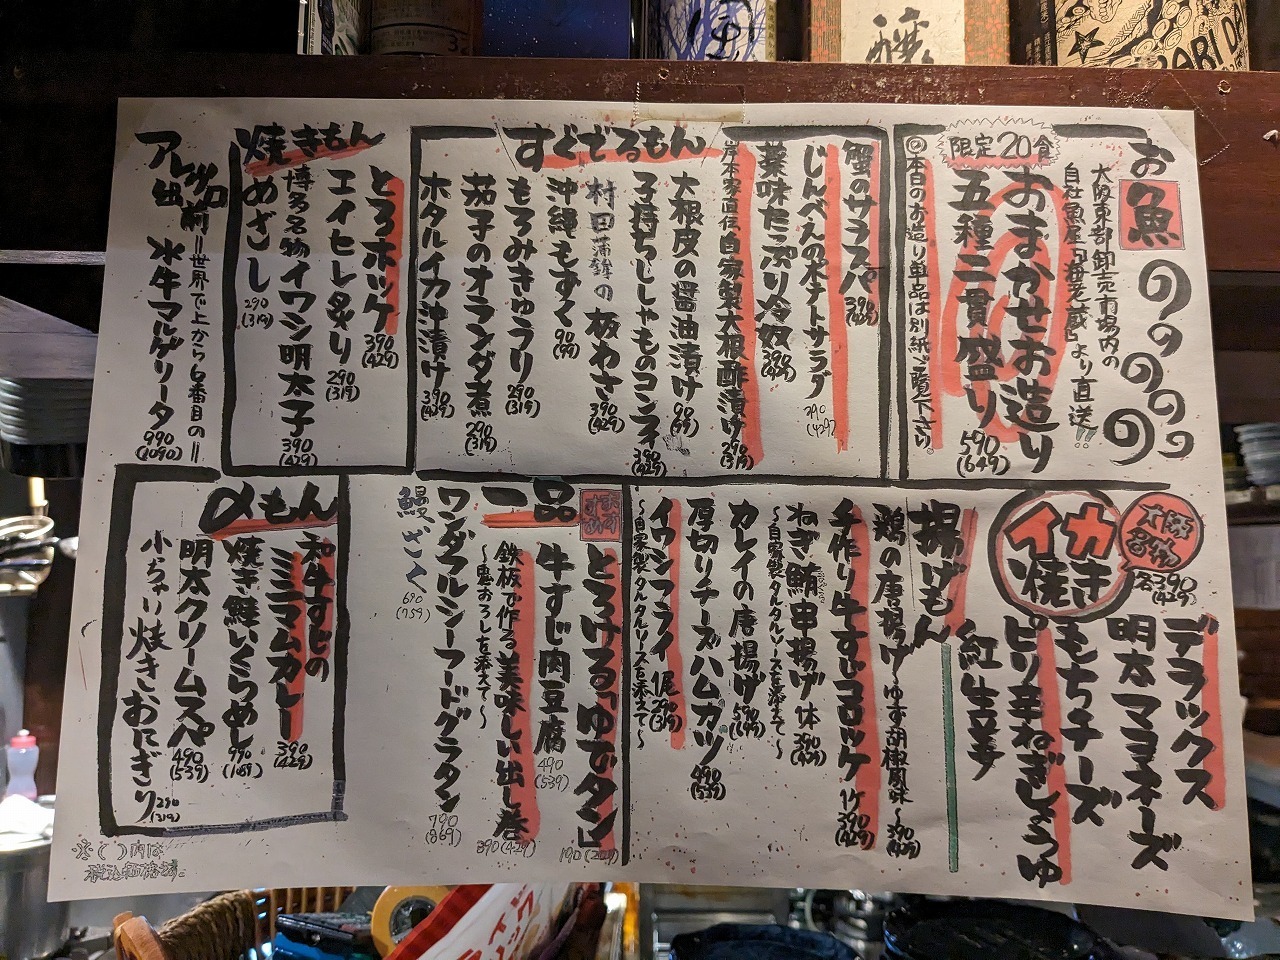 お魚ののののの
大阪東部卸売市場内の
自社魚屋「海老蔵」より直送!!
限定20食
おまかせお造り
五種二貫盛り 590 (649)
◎本日のお造り単品は別紙ご覧下さい
すぐでるもん
蟹のサラスパ 390 (429)
じんべえの水ナトサラダ 390 (429)
薬味たっぷり冷奴 390 (429)
岸本家直伝自家製大根酢漬け 290 (319)
大根皮の醤油漬け 90 (99)
子持ちししゃものコンフィ 390 (429)
村田蒲鉾の板わさ 390 (429)
沖縄もずく 90 (99)
もろみきゅうり 290 (319)
茄子のオランダ煮 290 (319)
ホタルイカ沖漬け 390 (429)
焼きもん
とろホッケ 390 (429)
エイヒレ炙り 290 (319)
博多名物イワシ明太子 390 (429)
めざし 290 (319)
アレッ出前
=世界で上から6番目の=
水牛マルゲリータ 990 (1090)
大阪名物
イカ焼き
各390 (429)
デラックス
明太マヨネーズ
もちチーズ
ピリ辛ねぎしょうゆ
紅生姜
揚げもん
鶏の唐揚げ~ゆず胡椒風味~ 390 (429)
手作り牛すじコロッケ 1ケ 390 (429)
ねぎ鮪串揚げ 1本 390 (429)
~自家製タルタルソースを添えて~
カレイの唐揚げ 590 (649)
厚切りチーズハムカツ 490 (539)
イワシフライ 1尾 290 (319)
~自家製タルタルソースを添えて~
一品
おすすめ
とろける「ゆでタン」 190 (209)
牛すじ肉豆腐 490 (539)
鉄板で作る美味しい出し巻 390 (429)
~鬼おろしを添えて~
ワンダフルシーフードグラタン 790 (869)
鰻ざく 690 (759)
〆もん
和牛すじの
ミニマムカレー 390 (429)
焼き鮭いくらめし 990 (1089)
明太クリームスパ 490 (539)
小っちゃい焼きおにぎり 290 (319)
※( )内は
税込価格